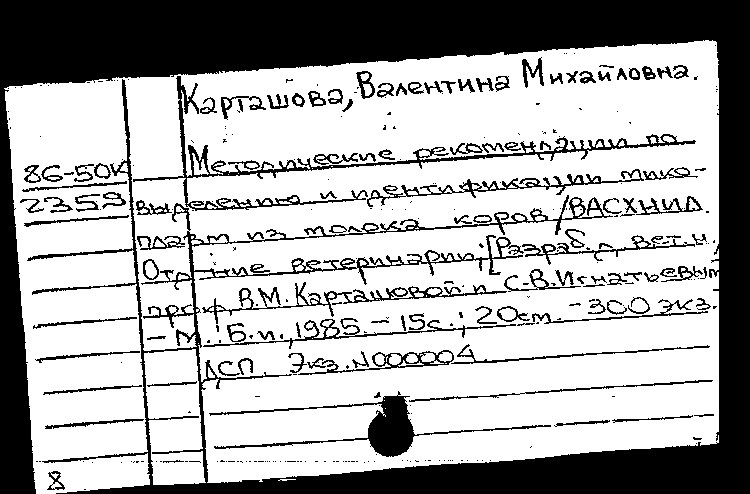 Карташова, Валентина Михайловна.
86-50к Методические рекомендации по
2359 выделению и идентификации мико-
плазм из молока коров / ВАСХНИЛ.
Отд-ние ветеринарии; [Разраб. д. вет. н.,
проф. В.М. Карташовой и С.В. Игнатьевым
– М.: Б.и., 1985. – 15с.; 20см. – 300 экз.
ДСП. Экз. N000004.
8